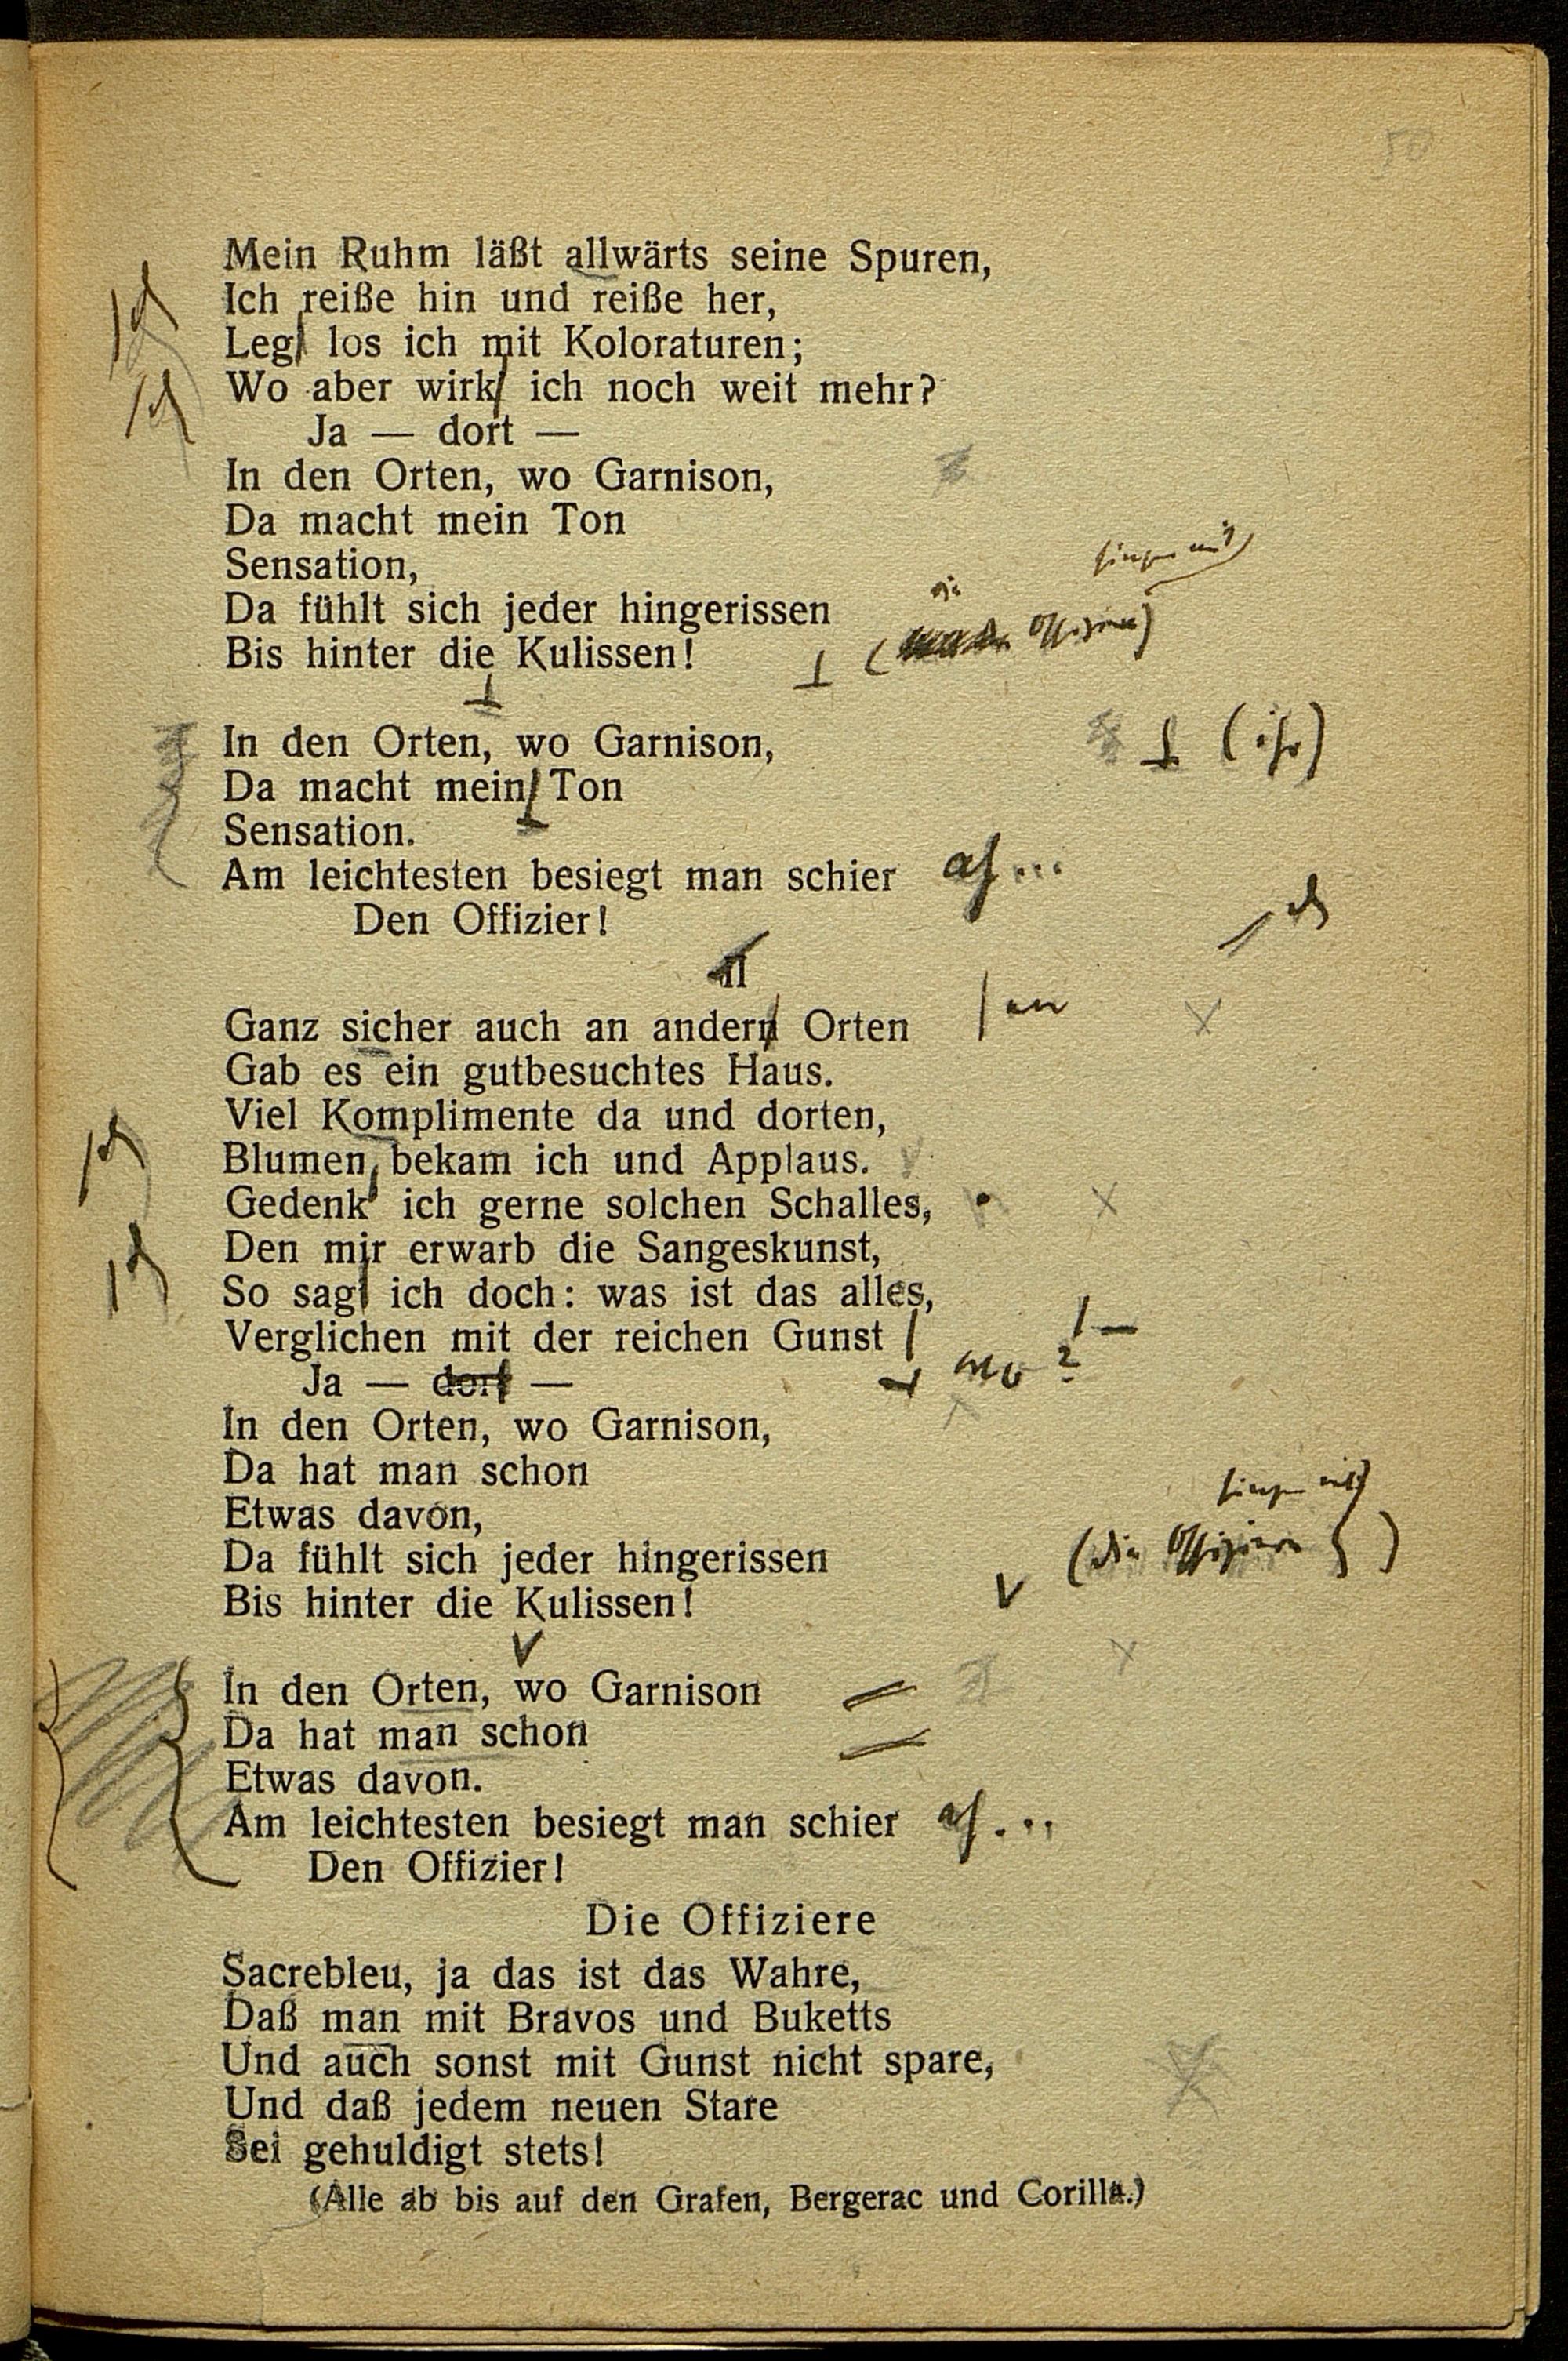 50
Mein Ruhm läßt allwärts seine Spuren,
Ich reiße hin und reiße her,
Leg' los ich mit Koloraturen;
Wo aber wirk' ich noch weit mehr?
Ja — dort —
In den Orten, wo Garnison,
Da macht mein Ton
Sensation,
singen mit
Da fühlt sich jeder hingerissen
die
Bis hinter die Kulissen! ( Offiziere)
In den Orten, wo Garnison, (ihr)
Da macht mein Ton
Sensation.
Am leichtesten besiegt man schier ach...
Den Offizier!
II
Ganz sicher auch an andern Orten en
Gab es ein gutbesuchtes Haus.
Viel Komplimente da und dorten,
Blumen bekam ich und Applaus.
Gedenk' ich gerne solchen Schalles,
Den mir erwarb die Sangeskunst,
So sag' ich doch: was ist das alles,
Verglichen mit der reichen Gunst —
Ja — dort — wo?
In den Orten, wo Garnison,
Da hat man schon
Etwas davon,
singen mit
Da fühlt sich jeder hingerissen (die Offiziere)
Bis hinter die Kulissen!
In den Orten, wo Garnison
Da hat man schon
Etwas davon.
Am leichtesten besiegt man schier ach...
Den Offizier!
Die Offiziere
Sacrebleu, ja das ist das Wahre,
Daß man mit Bravos und Buketts
Und auch sonst mit Gunst nicht spare,
Und daß jedem neuen Stare
Sei gehuldigt stets!
(Alle ab bis auf den Grafen, Bergerac und Corilla.)